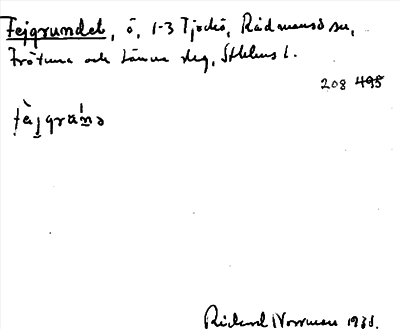 Fejgrundet, ö, 1-3 Tjockö, Rådmansö sn,
Frötuna och Länna skg, Sthlms l.
208 495
fæ̀jgrún̠ə
Rickard Norrman 1938.